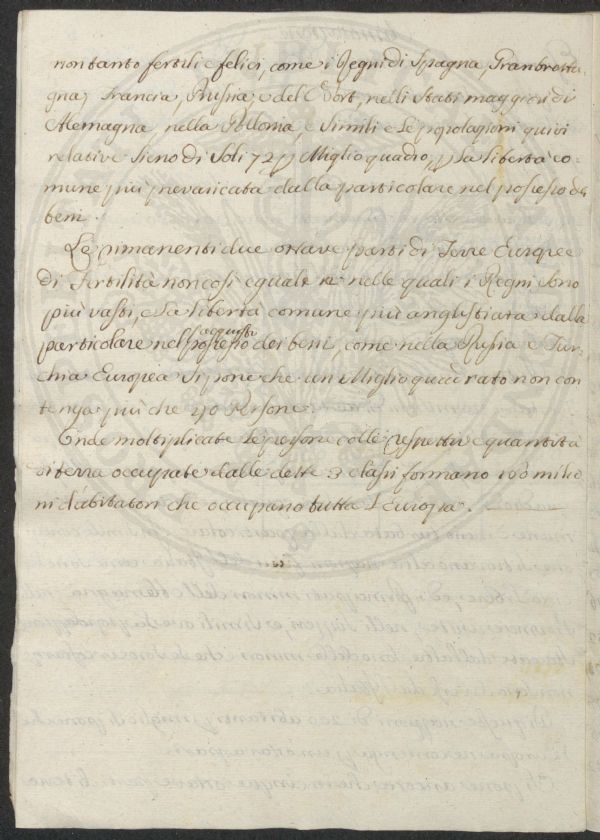 non tanto fertili e felici, come i Regni di Spagna, Granbretta-
gna, Francia, Prussia, e del Nort, nelli Stati maggiori di
Alemagna, nella Pollonia, e simili e le popolazioni quivi
relative sieno di soli 72 p Miglio quadro, p la libertà co-
mune più prevaricata dalla particolare nel possesso de
beni.
Le rimanenti due ottave parti di Terre Europee
di fertilità non così eguale nelle quali i Regni sono
più vasti, e la libertà comune più anglustiata dalla
acquisto
particolare nel possesso dei beni, come nella Russia e Tur-
chia Europea si pone che un Miglio quadrato non con
tenga più che Persone.
Onde moltiplicate le persone colle respettive quantità
di terra occupate dalle dette 3 classi formano milio
ni d'abitatori che occupano tutta l'Europa.